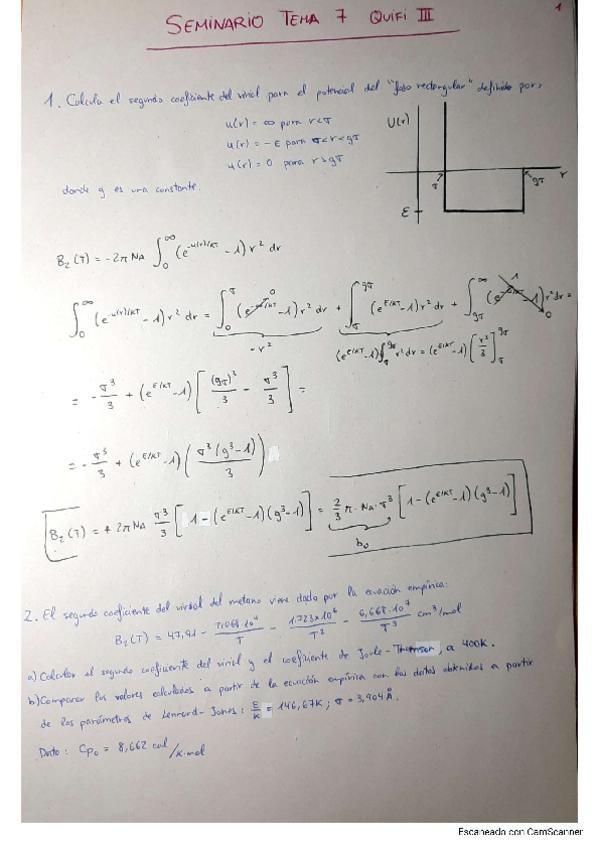 SEMINARIO TEMA 7 QUIFI III
1
1. Calcula el segundo coeficiente del virial para el potencial del "foso rectangular" definido por:
u(r) = ∞ para r<σ
u(r) = -ε para σ<r<gσ
u(r) = 0 para r>gσ
donde g es una constante.
U(r)
σ
gσ
r
ε
B₂(T) = -2π NA ∫₀^∞ (e^(-u(r)/KT) - 1) r² dr
∫₀^∞ (e^(-u(r)/KT) - 1) r² dr = ∫₀^σ (e^(-∞/KT) - 1) r² dr + ∫_σ^(gσ) (e^(ε/KT) - 1) r² dr + ∫_(gσ)^∞ (e^(-0/KT) - 1) r² dr =
0
1
0
-r²
(e^(ε/KT) - 1) ∫_σ^(gσ) r² dr = (e^(ε/KT) - 1) [r³/3]_σ^(gσ)
= -σ³/3 + (e^(ε/KT) - 1) [(gσ)³/3 - σ³/3] =
= -σ³/3 + (e^(ε/KT) - 1) (σ³(g³-1)/3)
B₂(T) = + 2π NA σ³/3 [1 - (e^(ε/KT) - 1)(g³-1)] = 2/3 π · NA · σ³ [1 - (e^(ε/KT) - 1)(g³-1)]
b₀
2. El segundo coeficiente del virial del metano viene dado por la ecuación empírica:
B₂(T) = 47,91 - 7.068·10⁴/T - 1.723×10⁶/T² - 6,667·10⁷/T³ cm³/mol
a) Calcular el segundo coeficiente del virial y el coeficiente de Joule-Thomson, a 400K.
b) Comparar los valores calculados a partir de la ecuación empírica con los datos obtenidos a partir
de los parámetros de Lennard-Jones: ε/K = 146,67K ; σ = 3,904 Å.
Dato: Cp₀ = 8,662 cal/K·mol
Escaneado con CamScanner